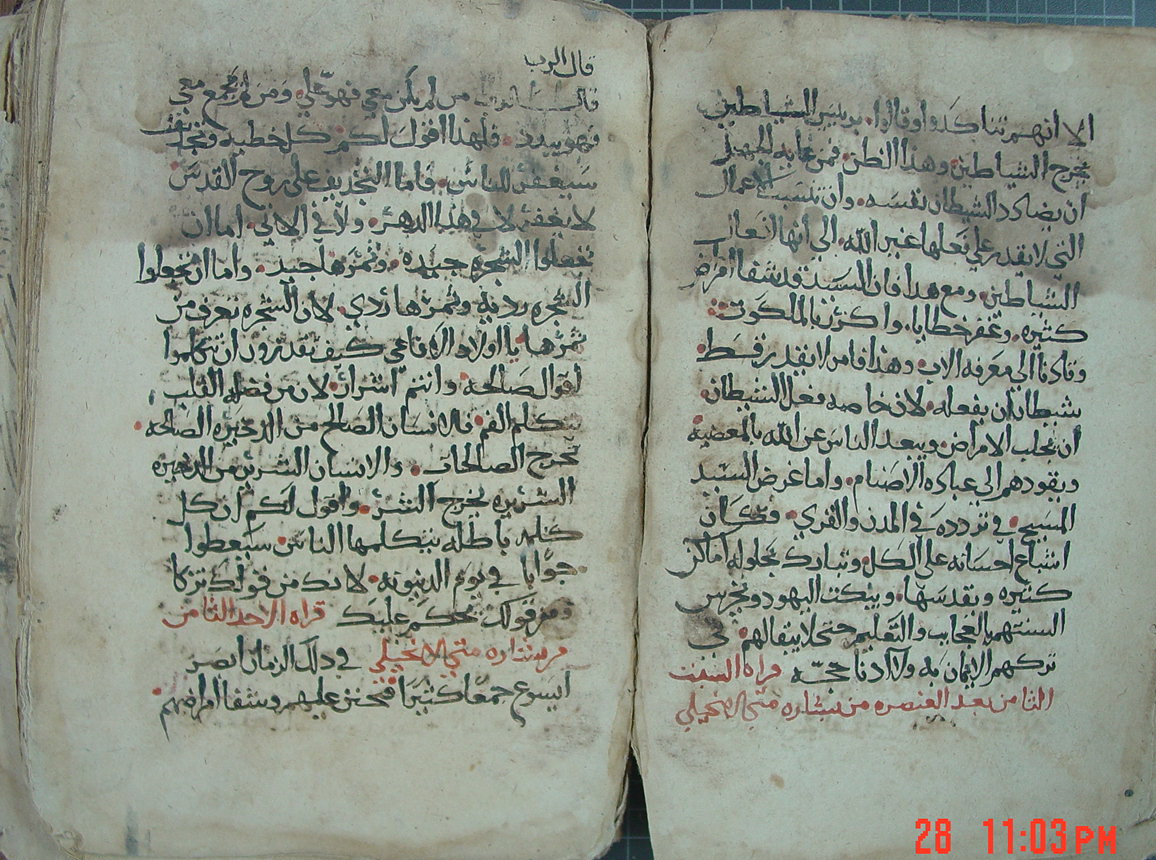 الا انهم تناكدوا وقالوا. برييس الشياطين
يخرج الشياطين وهذا الظن. فمن غايه الجهل
ان يضادد الشيطان نفسه. وان تنسب الاعمال
التي لا يقدر علي فعلها غير الله. الي
الشياطين. ومع هدا فان السيد قد شفا امراض
كثيره. وغفر خطايا. واكرز بالملكوت.
وقادنا الي معرفه الاب. وهذا فما لا يقدر قط.
شيطان ان يفعله. لان خاصه فعل الشيطان.
ان يجلب الامراض. ويبعد الناس عن الله بالمعصيه
ويقودهم الي عباده الاصنام. واما غرض السيد
المسيح. في تردده في المدن والقري. فكان
اشباع احسانه علي الكل. وتبارك بحلوله اماكن
كثيره ويقدسها. ويبكت اليهود ويخرس
السنتهم بالعجايب والتعليم حتي لا يبقا لهم. في
تركهم الايمان به ولا ادنا حجه قراه السبت
الثامن بعد العنصره من بشاره متي الانجيلي
قال الرب
قال الرب من لم يكن معي فهو علي. ومن لم يجمع معي
فهو يبدد. ولهذا اقول لكم. كل خطيه وتجديف
سيغفر للناس. فاما التجديف علي روح القدس
لا يغفر لا في هذا الدهر. ولا في الاتي. اما ان
تجعلوا الشجره جيده. وثمرها جيد. واما ان تجعلوا
الشجره رديه وثمرها ردي. لان الشجره تعرف من
ثمرها. يا اولاد الافاعي كيف تقدرون ان تتكلموا
اقوال صالحه. وانتم اشرار. لان من فضله القلب
يتكلم الفم. فالانسان الصالح من الدخيره الصالحه.
يخرج الصالحات. والانسان الشرير من الدخيره
الشريره يخرج الشر. واقول لكم ان كل
كلمه باطله يتكلمها الناس. سيعطوا
جوابا في يوم الدينونه. لانك من قولك تزكا
ومن قولك يحكم عليك قراه الاحد الثامن
من بشاره متي الانجيلي في دلك الزمان ابصر
ايسوع جمعا كثيرا فتحنن عليهم وشفا امراضهم